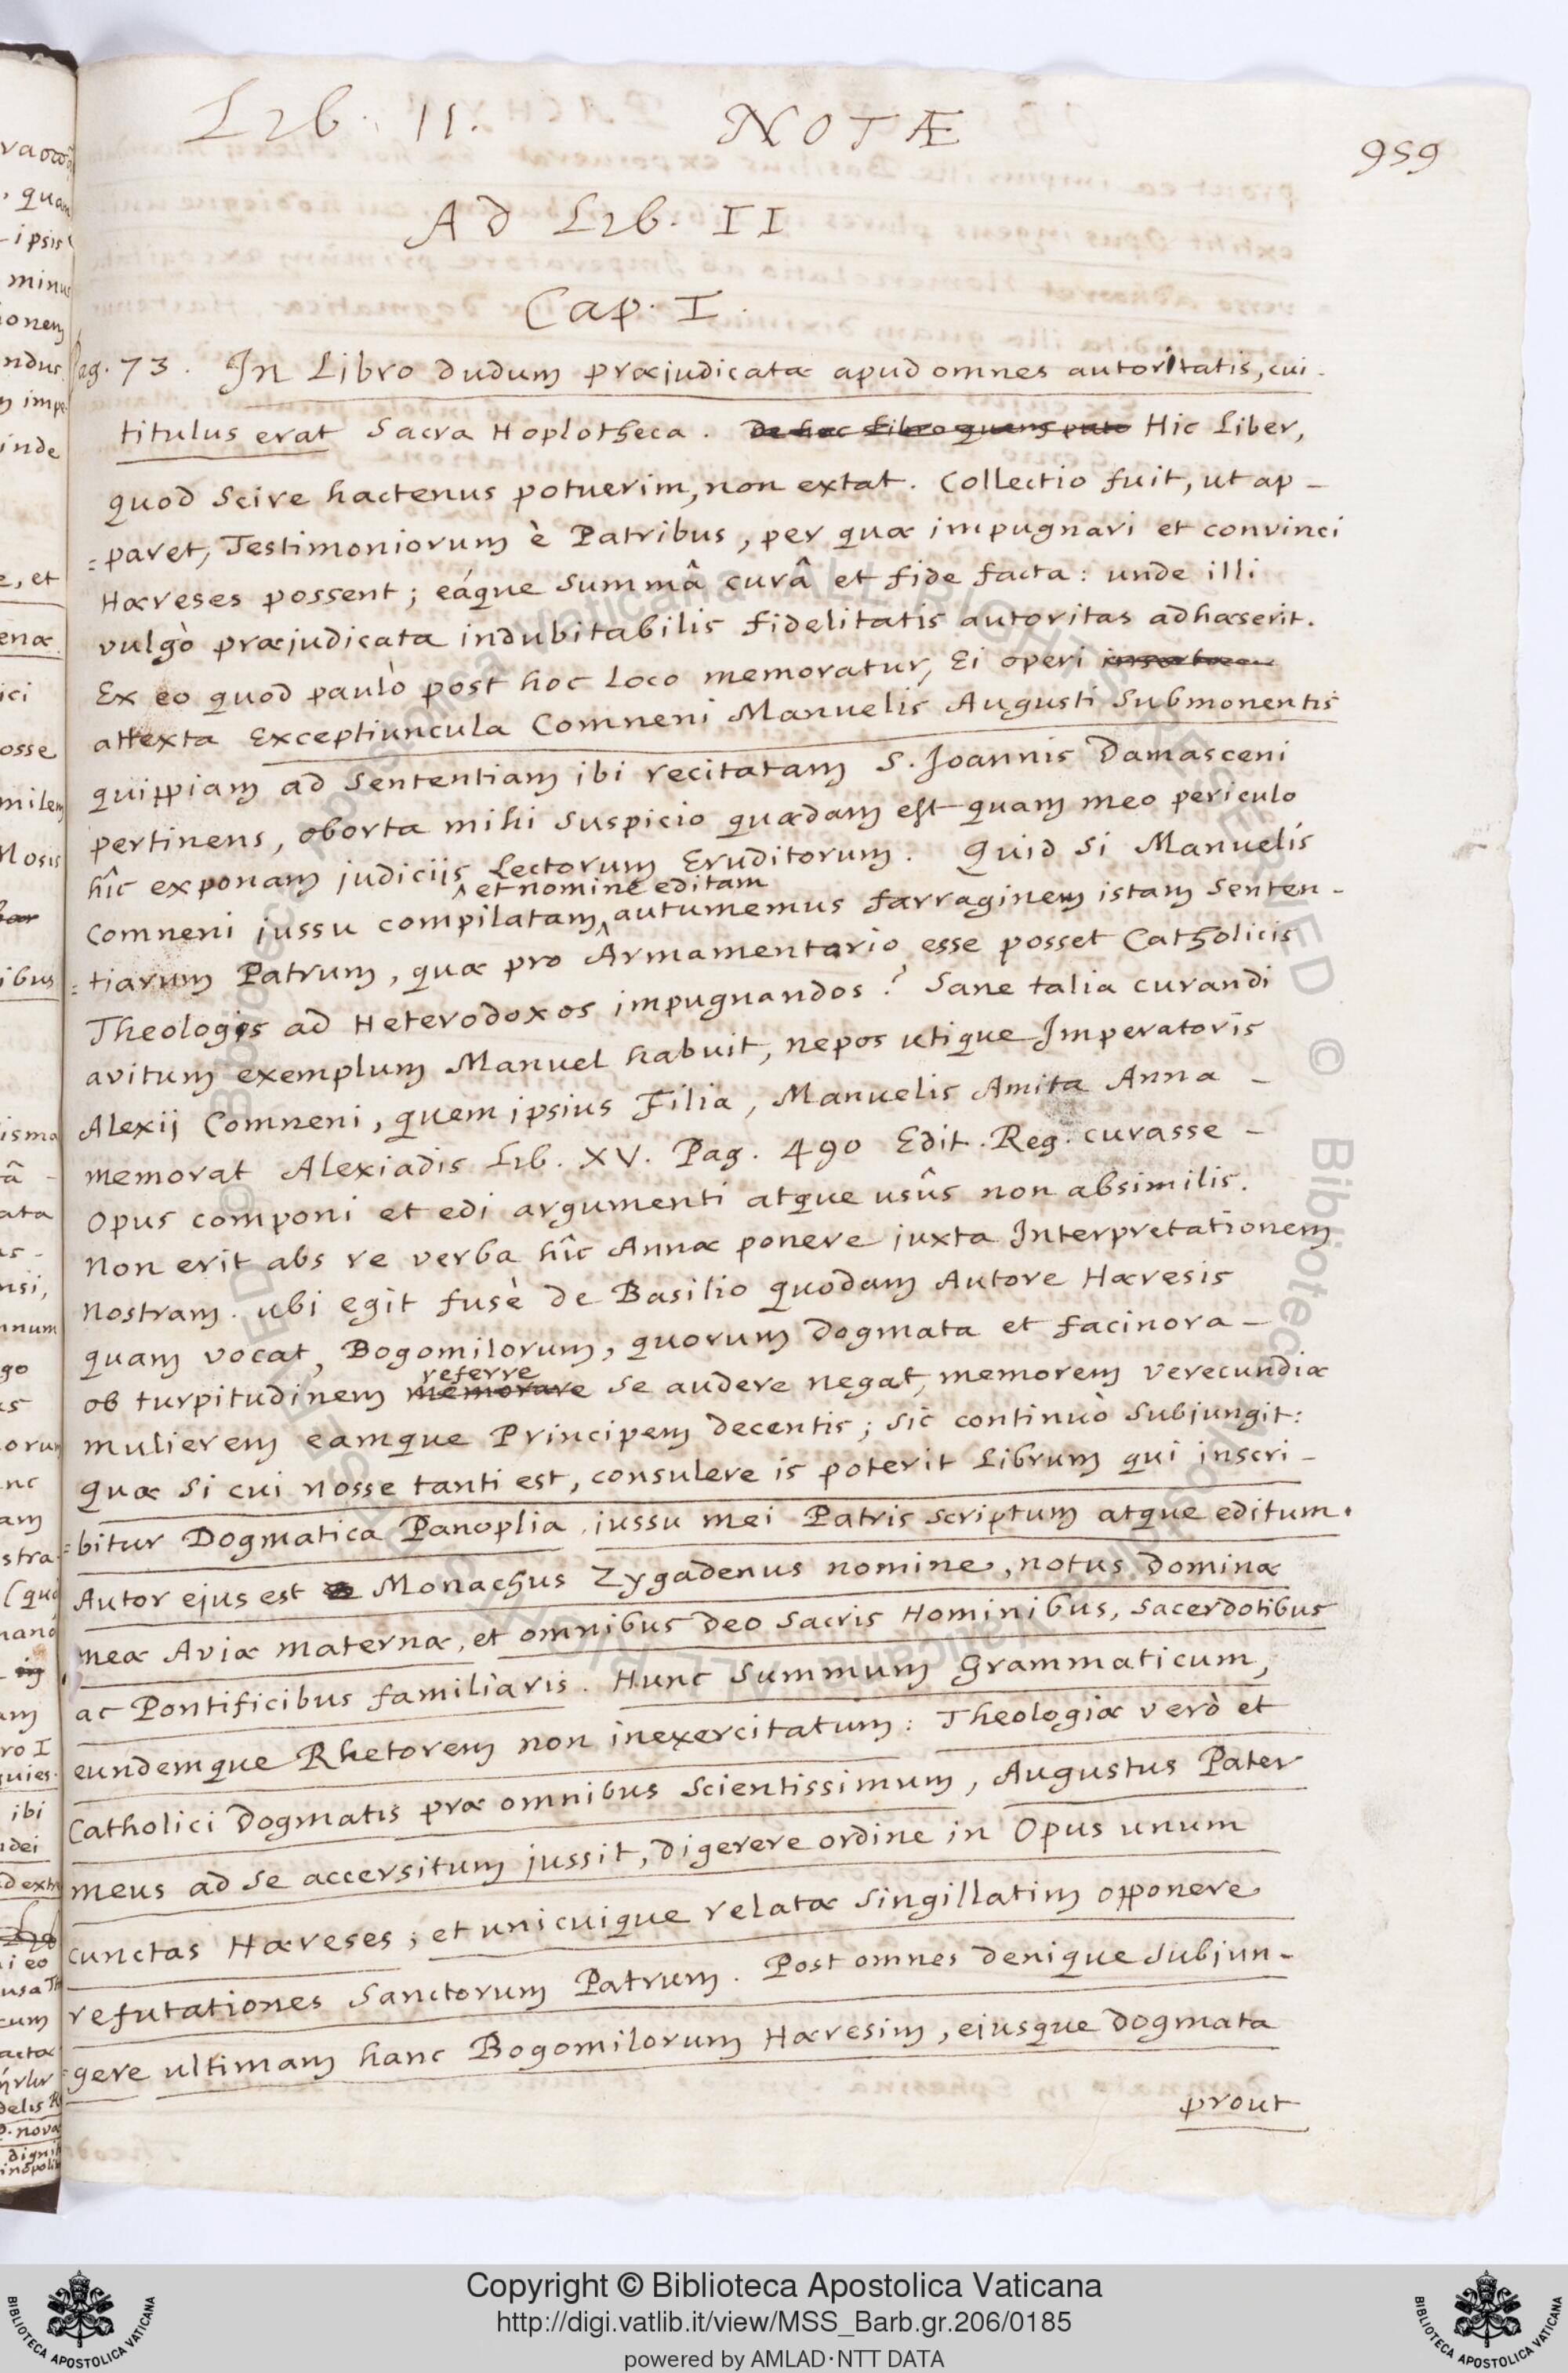 Lib. II. NOTÆ
959
Ad Lib. II
Cap. I.
Pag. 73. In Libro dudum præjudicatæ apud omnes autoritatis, cui
titulus erat Sacra Hoplotheca. De hoc Libro quem puto Hic Liber,
quod scire hactenus potuerim, non extat. Collectio fuit, ut ap-
=paret, Testimoniorum è Patribus, per quæ impugnari et convinci
Hæreses possent; eáque summâ curâ et fide facta: unde illi
vulgò præjudicata indubitabilis fidelitatis autoritas adhæserit.
Ex eo quod paulò post hoc loco memoratur, Ei operi
attexta Exceptiuncula Comneni Manuelis Augusti submonentis
quippiam ad Sententiam ibi recitatam S. Joannis Damasceni
pertinens, oborta mihi suspicio quædam est quam meo periculo
hîc exponam judiciis Lectorum Eruditorum. Quid si Manuelis
et nomine editam
Comneni jussu compilatam autumemus farraginem istam senten-
=tiarum Patrum, quæ pro Armamentario esse posset Catholicis
Theologis ad Heterodoxos impugnandos? Sane talia curandi
avitum exemplum Manuel habuit, nepos utique Imperatoris
Alexij Comneni, quem ipsius Filia, Manuelis Amita Anna -
memorat Alexiadis Lib. XV. Pag. 490 Edit. Reg. curasse -
Opus componi et edi argumenti atque usûs non absimilis.
Non erit abs re verba hîc Annæ ponere juxta Interpretationem
Nostram. ubi egit fusè de Basilio quodam Autore Hæresis
quam vocat, Bogomilorum, quorum Dogmata et facinora -
referre
ob turpitudinem memorare se audere negat, memorem verecundiæ
mulierem eamque Principem decentis; sic continuò subjungit:
Quæ si cui nosse tanti est, consulere is poterit Librum qui inscri-
=bitur Dogmatica Panoplia, jussu mei Patris scriptum atque editum.
Autor ejus est Monachus Zygadenus nomine, notus Dominæ
meæ Aviæ maternæ, et omnibus Deo Sacris Hominibus, Sacerdotibus
ac Pontificibus familiaris. Hunc summum Grammaticum,
eundemque Rhetorem non inexercitatum: Theologiæ verò et
Catholici Dogmatis præ omnibus scientissimum, Augustus Pater
meus ad se accersitum jussit, digerere ordine in Opus unum
cunctas Hæreses; et unicuique relatæ singillatim opponere
refutationes Sanctorum Patrum. Post omnes denique subjun-
=gere ultimam hanc Bogomilorum Hæresim, ejusque Dogmata
prout
Copyright © Biblioteca Apostolica Vaticana
http://digi.vatlib.it/view/MSS_Barb.gr.206/0185
powered by AMLAD·NTT DATA
BIBLIOTECA APOSTOLICA VATICANA
BIBLIOTECA APOSTOLICA VATICANA